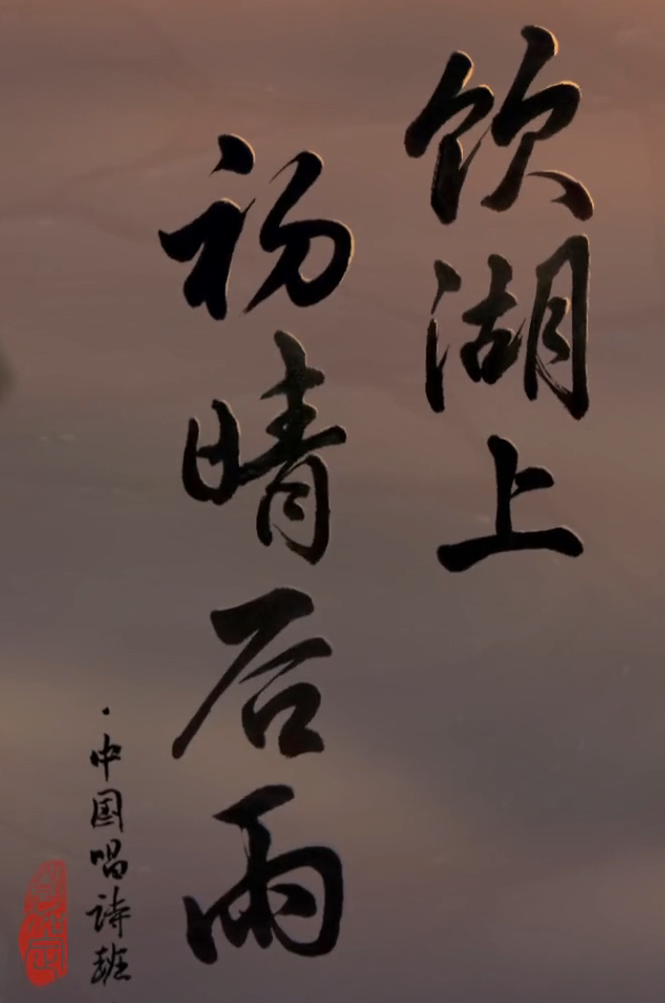 饮湖上
初晴后雨
·中国唱诗班